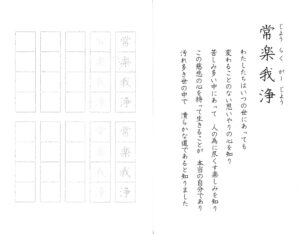 じょう らく が じょう
常楽我浄
わたしたちはいつの世にあっても
変わることのない思いやりの心を知り
苦しみ多い中にあって 人の為に尽くす楽しみを知り
この慈悲の心を持って生きることが 本当の自分であり
汚れ多き世の中で 清らかな道であると知りました
常楽我浄
常楽我浄